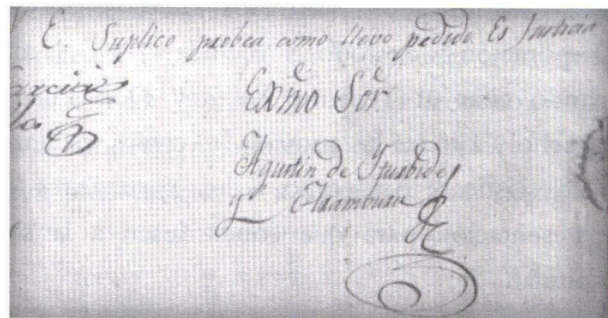 E. Suplico probea como llevo pedido Es Justicia
Exmo Sor
Agustin de Yturbide
y Aramburu